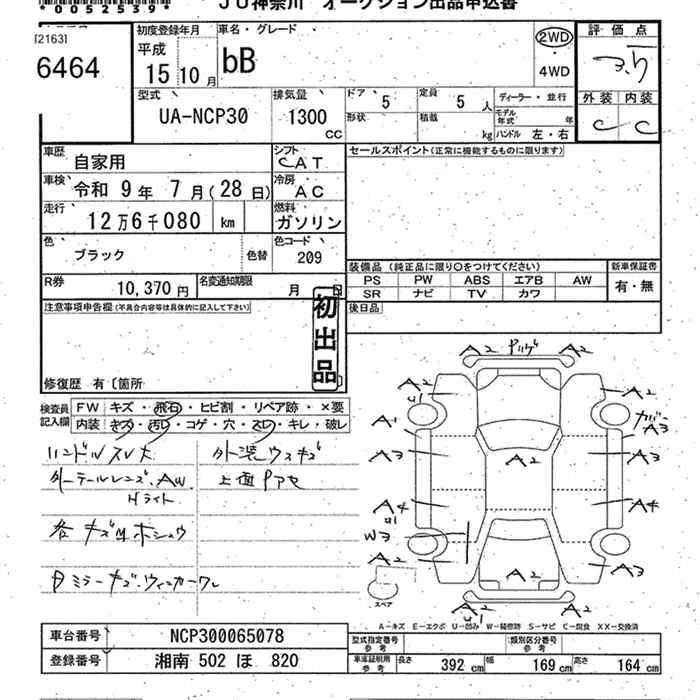 *0052539*
JU神奈川 オークション出品申込書
[2163]
6464
初度登録年月
平成
15年10月
車名・グレード
bB
2WD
・
4WD
評価点
3.5
外装 内装
C C
型式
UA-NCP30
排気量
1300
CC
ドア 5
定員 5 人
形状
積載 kg
ディーラー・並行
モデル年式 年
ハンドル 左・右
車歴
自家用
シフト
CAT
セールスポイント(正常に機能するものに限ります)
車検
令和 9年 7月(28日)
冷房
AC
走行
12万6千080 km
燃料
ガソリン
色
ブラック
色替
色コード
209
装備品 (純正品に限り○をつけてください)
新車保証書
PS PW ABS エアB AW
SR ナビ TV カワ
有・無
R券
10,370円
名変通知期限
月 日
後日品
注意事項申告欄(不具合内容等は具体的に記入して下さい)
初出品
修復歴 有〔箇所
検査員
記入欄
FW キズ・飛石・ヒビ割・リペア跡・×要
内装 キズ・汚レ・コゲ・穴・スレ・キレ・破レ
ハンドルスレ大
外装ウスキズ
外ーテールレンズ、AW
上面Pアセ
Hライト
各キズ凹ホシュウ
ミラーキズ・ウィンカーワレ
A2 A2
A2
U1
A2
A1
カバーA3
A3 A3
A2
A4 A4
U1
W3
A2 A3
A2
スペア
A2 A2
U1
A-キズ E-エクボ U-凹み W-補修跡 S-サビ C-腐食 XX-交換済
車台番号
NCP300065078
型式指定番号
類別区分番号
登録番号
湘南 502 ほ 820
車庫証明用
参考
長さ 392 cm
幅 169 cm
高さ 164 cm
参考 参考